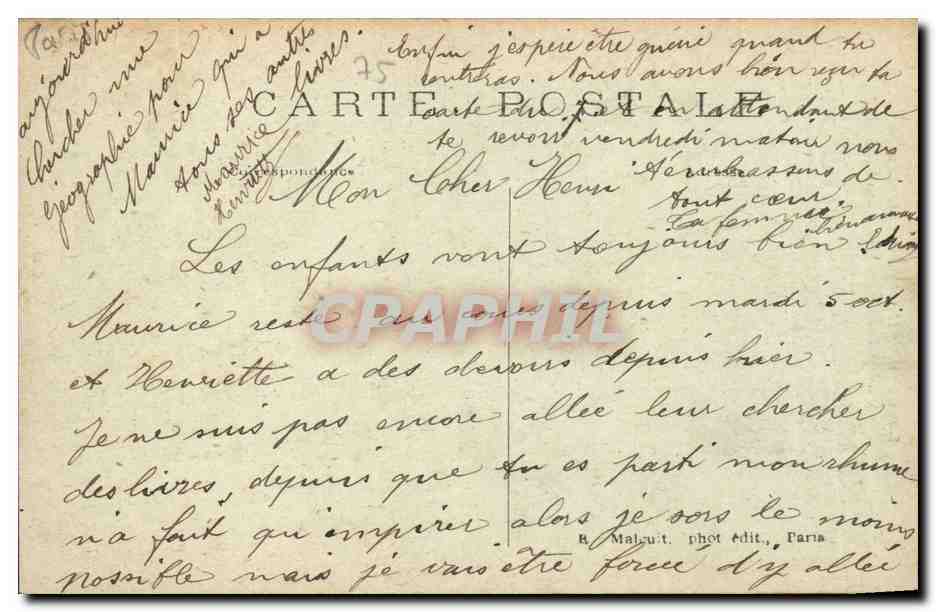 CARTE POSTALE
Correspondance
Mon Cher Henri
Les enfants vont toujours bien
Maurice reste au cours depuis mardi 5 oct.
et Henriette a des devoirs depuis hier.
Je ne suis pas encore allée leur chercher
des livres, depuis que tu es parti mon rhume
n'a fait qu'empirer alors je sors le moins
possible mais je vais être forcée d'y allée
aujourd'hui
chercher une
géographie pour
Maurice qui a
tous ses autres
livres.
Maurice
Henriette
75
Enfin j'espère être guérie quand tu
rentreras. Nous avons bien reçu ta
carte du et en attendant de
te revoir vendredi matin nous
t'embrassons de
tout cœur.
Ta femme
B. Malcuit, phot édit., Paris
CPAPHIL